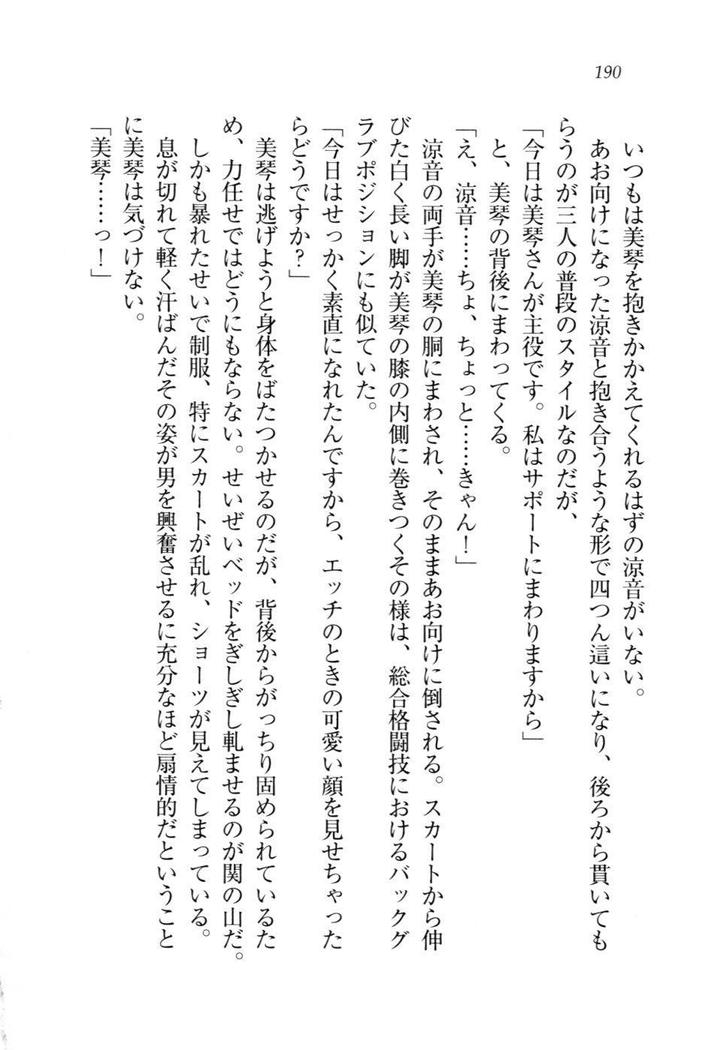 190
いつもは美琴を抱きかかえてくれるはずの涼音がいない。
あお向けになった涼音と抱き合うような形で四つん這いになり、後ろから貫いても
らうのが三人の普段のスタイルなのだが、
「今日は美琴さんが主役です。私はサポートにまわりますから」
と、美琴の背後にまわってくる。
「え、涼音……ちょ、ちょっと……きゃん！」
涼音の両手が美琴の胴にまわされ、そのままあお向けに倒される。スカートから伸
びた白く長い脚が美琴の膝の内側に巻きつくその様は、総合格闘技におけるバックグ
ラブポジションにも似ていた。
「今日はせっかく素直になれたんですから、エッチのときの可愛い顔を見せちゃった
らどうですか？」
美琴は逃げようと身体をばたつかせるのだが、背後からがっちり固められているた
め、力任せではどうにもならない。せいぜいベッドをぎしぎし軋ませるのが関の山だ。
しかも暴れたせいで制服、特にスカートが乱れ、ショーツが見えてしまっている。
息が切れて軽く汗ばんだその姿が男を興奮させるに充分なほど扇情的だということ
に美琴は気づけない。
「美琴……っ！」